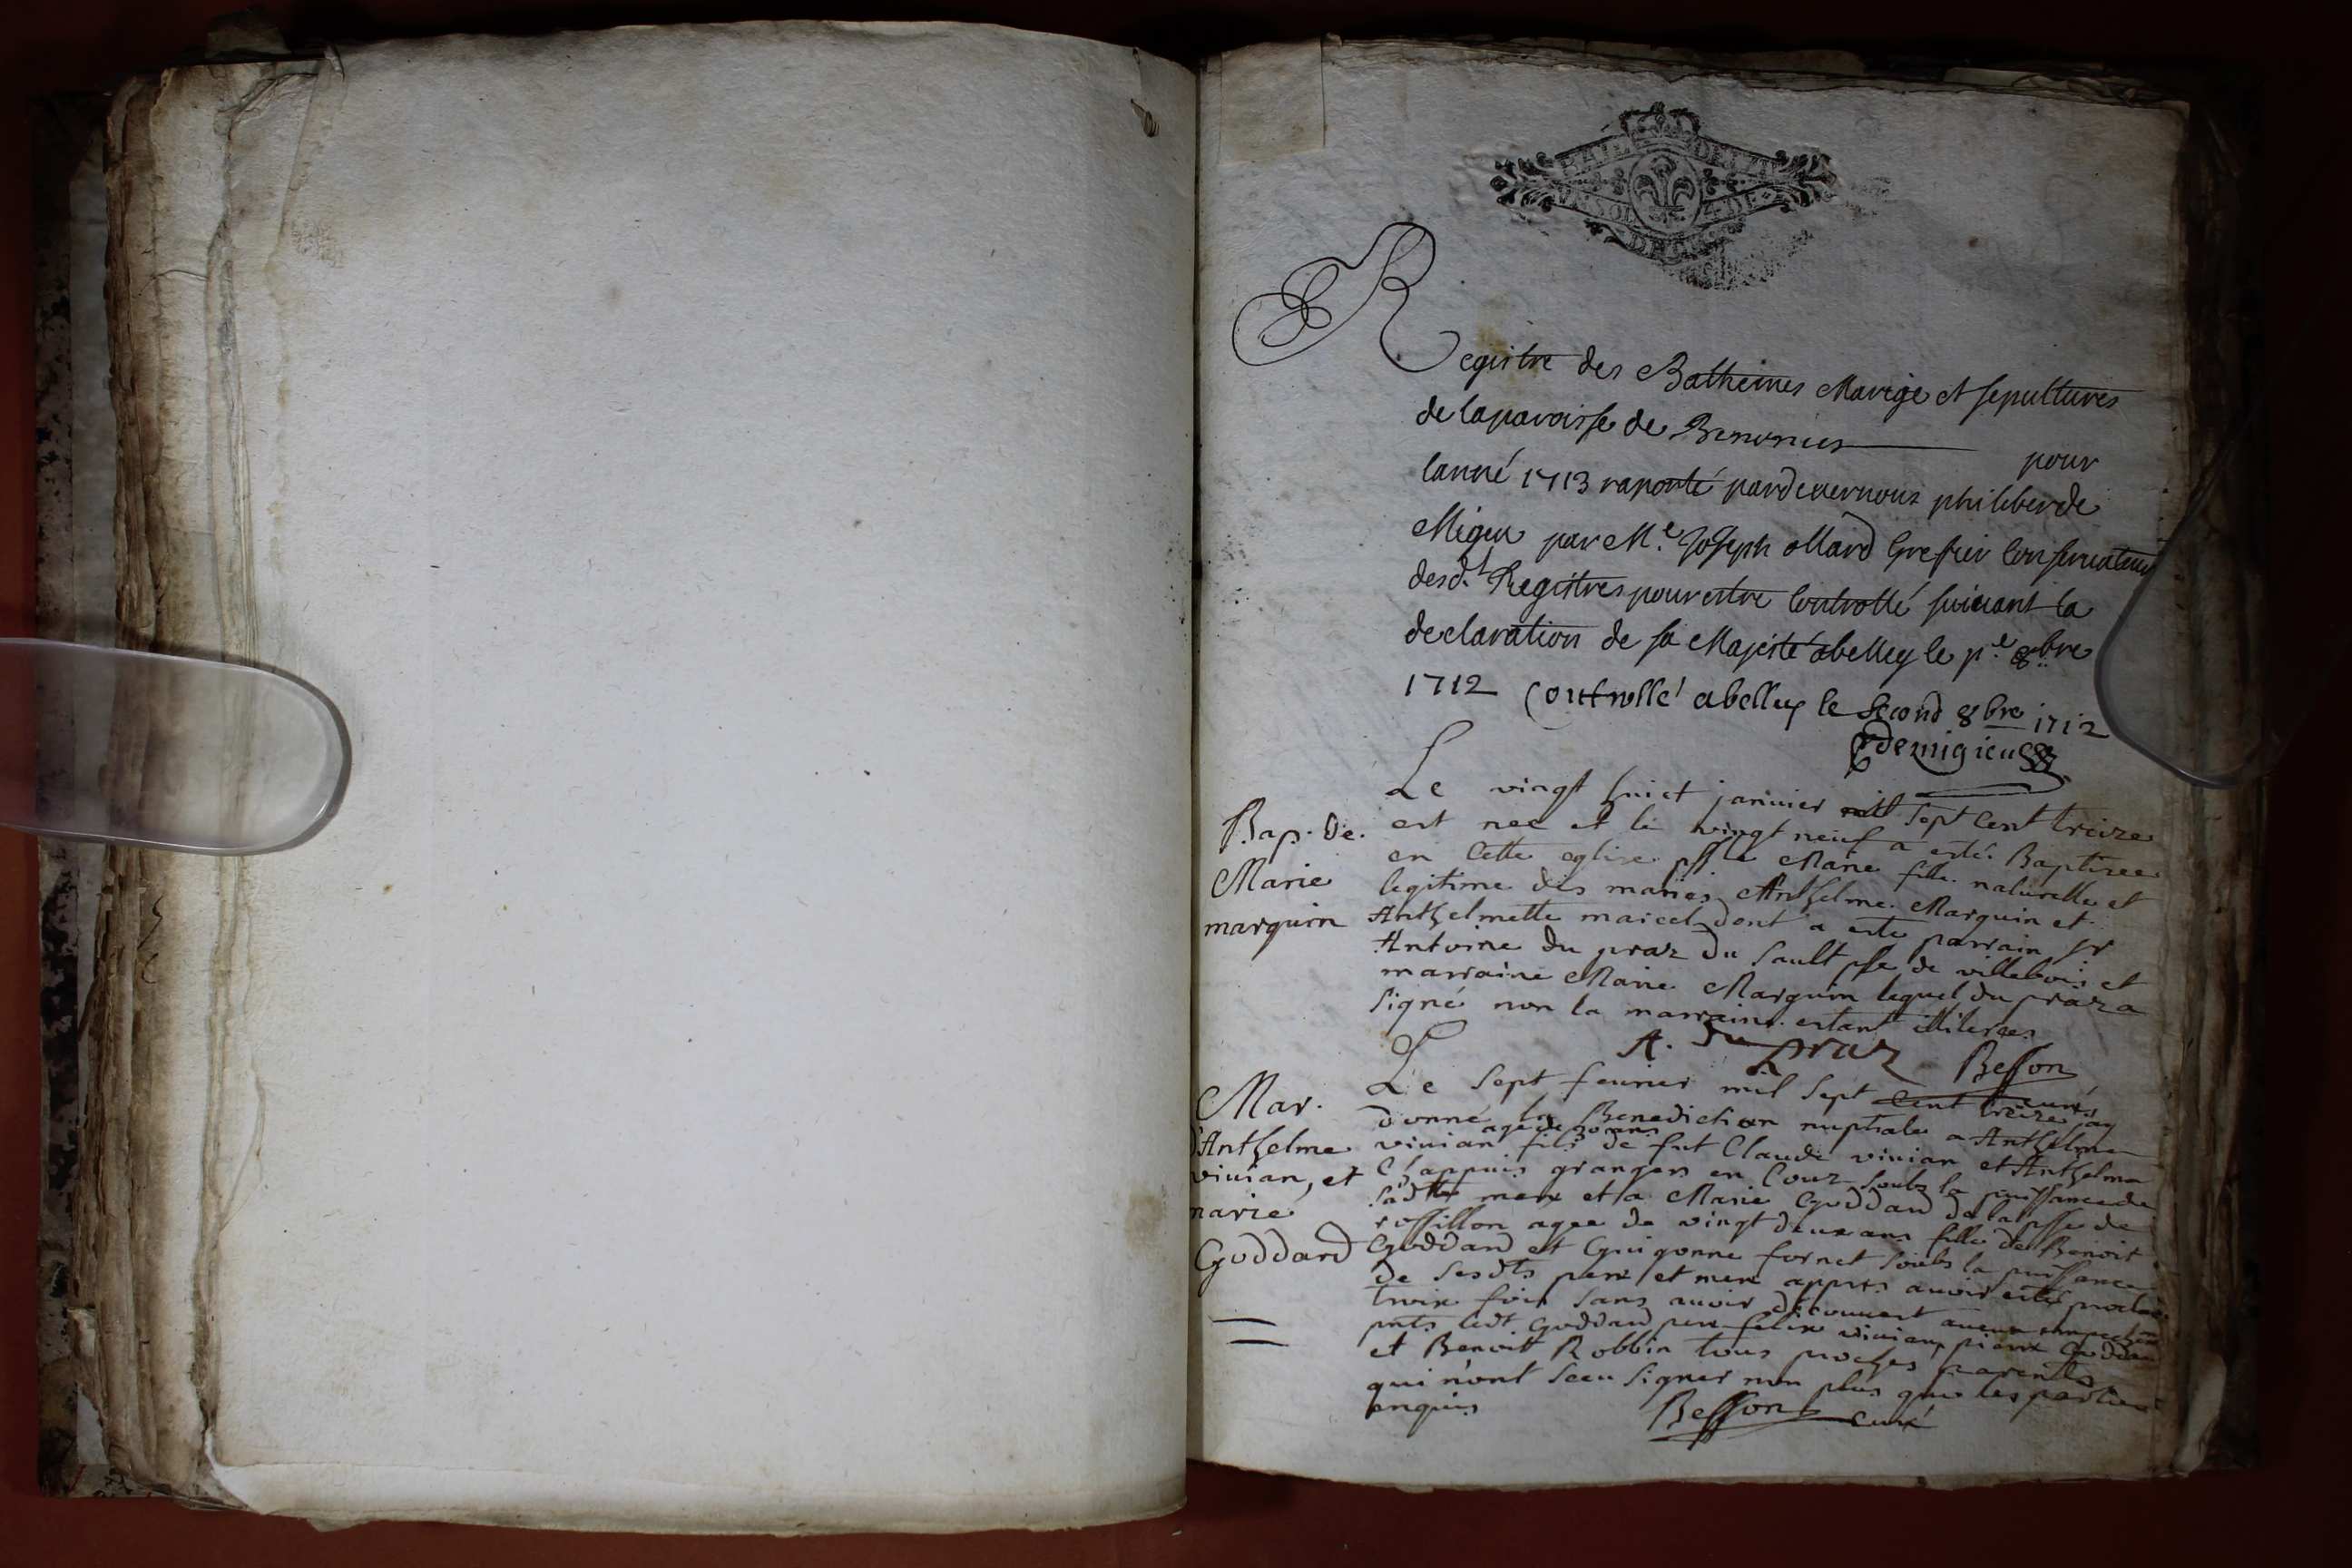 Registre des Batheimes Marige et sepultures
de la paroisse de Benonces pour
lanné 1713 raporté pardevernous philiber de
Migieu par M.e Joseph ollard Grefier Conservateur
desd.t Registres pour estre Controllé suivant la
declaration de sa Majesté abelley le p.e 8.bre
1712 Controllé abelley le second 8bre 1712
demigieu
Le vingt huict janvier mil sept Cent treize
Bap. De.
Marie
marquin
est nee et le vingt neuf a esté Baptizee
en Cette eglise psse Marie fille naturelle et
legitime des mariés Anthelme Marquin et
Anthelmette marcel dont a esté parrain sr
Antoine du praz du Sault psse de villebois et
marraine Marie Marquin lequel du praz a
signé non la marraine estant illiteree
A. Du praz Besson
curé
Le sept feurier mil sept cent treize jay
Mar.
d'Anthelme
viuian, et
marie
Goddard
donné la Benediction nuptiale a Anthelme
agé de 30 ans
viuian fils de fut Claude viuian et Anthelma
Chappuis grangers en Cour soubz la puissance de
sadtte mere et a Marie Goddard de la psse de
rossillon agee de vingt deux ans fille de Benoit
Goddard et Guigonne fornet soubs la puissance
de sesdts pere et mere appres auoir estés proclamés
troix fois sans auoir découuert aucun empechemt
pnts ledt Goddard pere felix viuian, pierre Goddard
et Benoitt Robbin tous proches parents
qui n'ont sceu signer non plus que les parties
enquis Besson curé